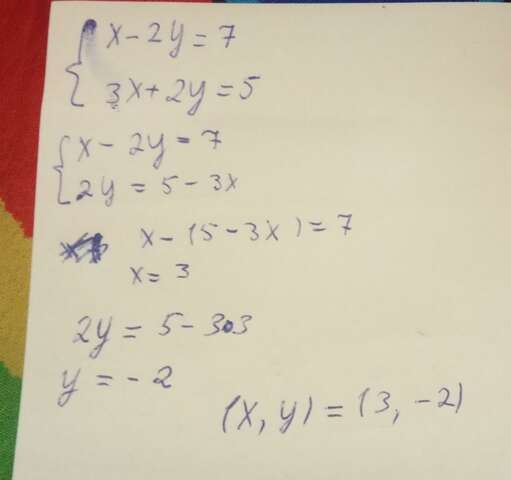 x - 2y = 7
3x + 2y = 5
x - 2y = 7
2y = 5 - 3x
x - (5 - 3x) = 7
x = 3
2y = 5 - 3•3
y = -2
(x, y) = (3, -2)